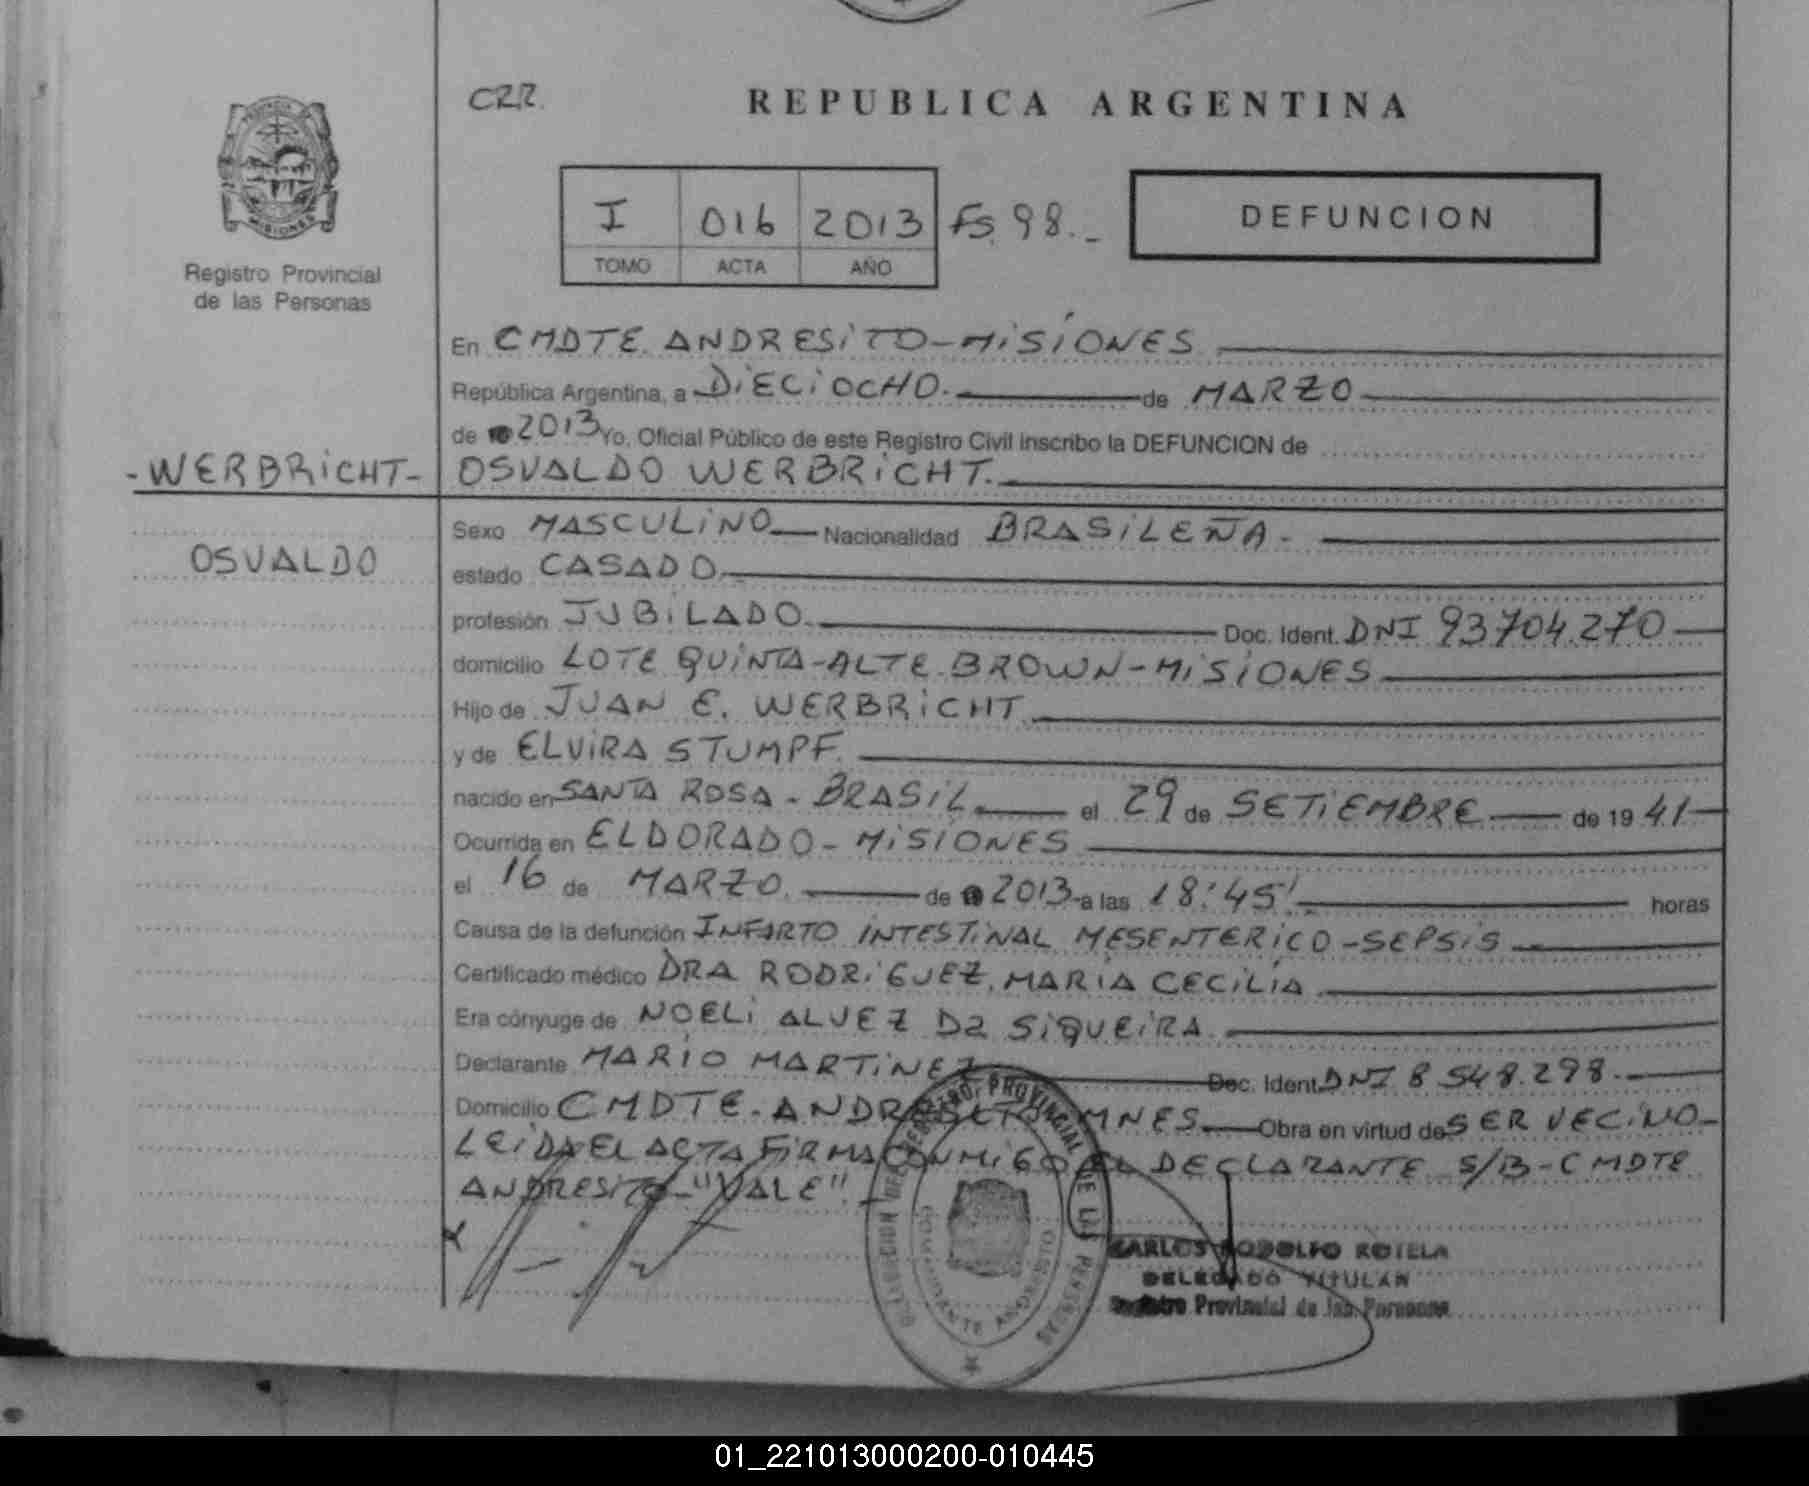 CRR.
REPUBLICA ARGENTINA
MISIONES
Registro Provincial
de las Personas
I 016 2013 Fs. 98._
TOMO ACTA AÑO
DEFUNCION
En CMDTE. ANDRESITO-MISIONES
República Argentina, a DIECIOCHO. de MARZO
de 2013 Yo, Oficial Público de este Registro Civil inscribo la DEFUNCION de
-WERBRICHT- OSVALDO WERBRICHT.
OSVALDO
Sexo MASCULINO Nacionalidad BRASILEÑA-
estado CASADO
profesión JUBILADO. Doc. Ident. DNI 93704.270
domicilio LOTE QUINTA-ALTE BROWN-MISIONES
Hijo de JUAN E. WERBRICHT
y de ELVIRA STUMPF.
nacido en SANTA ROSA-BRASIL el 29 de SETIEMBRE de 1941
Ocurrida en ELDORADO-MISIONES
el 16 de MARZO. de 2013 a las 18:45' horas
Causa de la defunción INFARTO INTESTINAL MESENTERICO-SEPSIS
Certificado médico DRA RODRIGUEZ, MARIA CECILIA
Era cónyuge de NOELI ALVEZ DE SIQUEIRA.
Declarante MARIO MARTINEZ Doc. Ident. DNI 8 548.298.
Domicilio CMDTE. ANDRESITO MNES. Obra en virtud de SER VECINO-
LEIDA EL ACTA FIRMA CONMIGO EL DECLARANTE S/B-CMDTE
ANDRESITO-"VALE".-
DELEGACION DEL REGISTRO PROVINCIAL DE LAS PERSONAS
COMANDANTE ANDRESITO
CARLOS RODOLFO ROTELA
DELEGADO TITULAR
Registro Provincial de las Personas
01_221013000200-010445